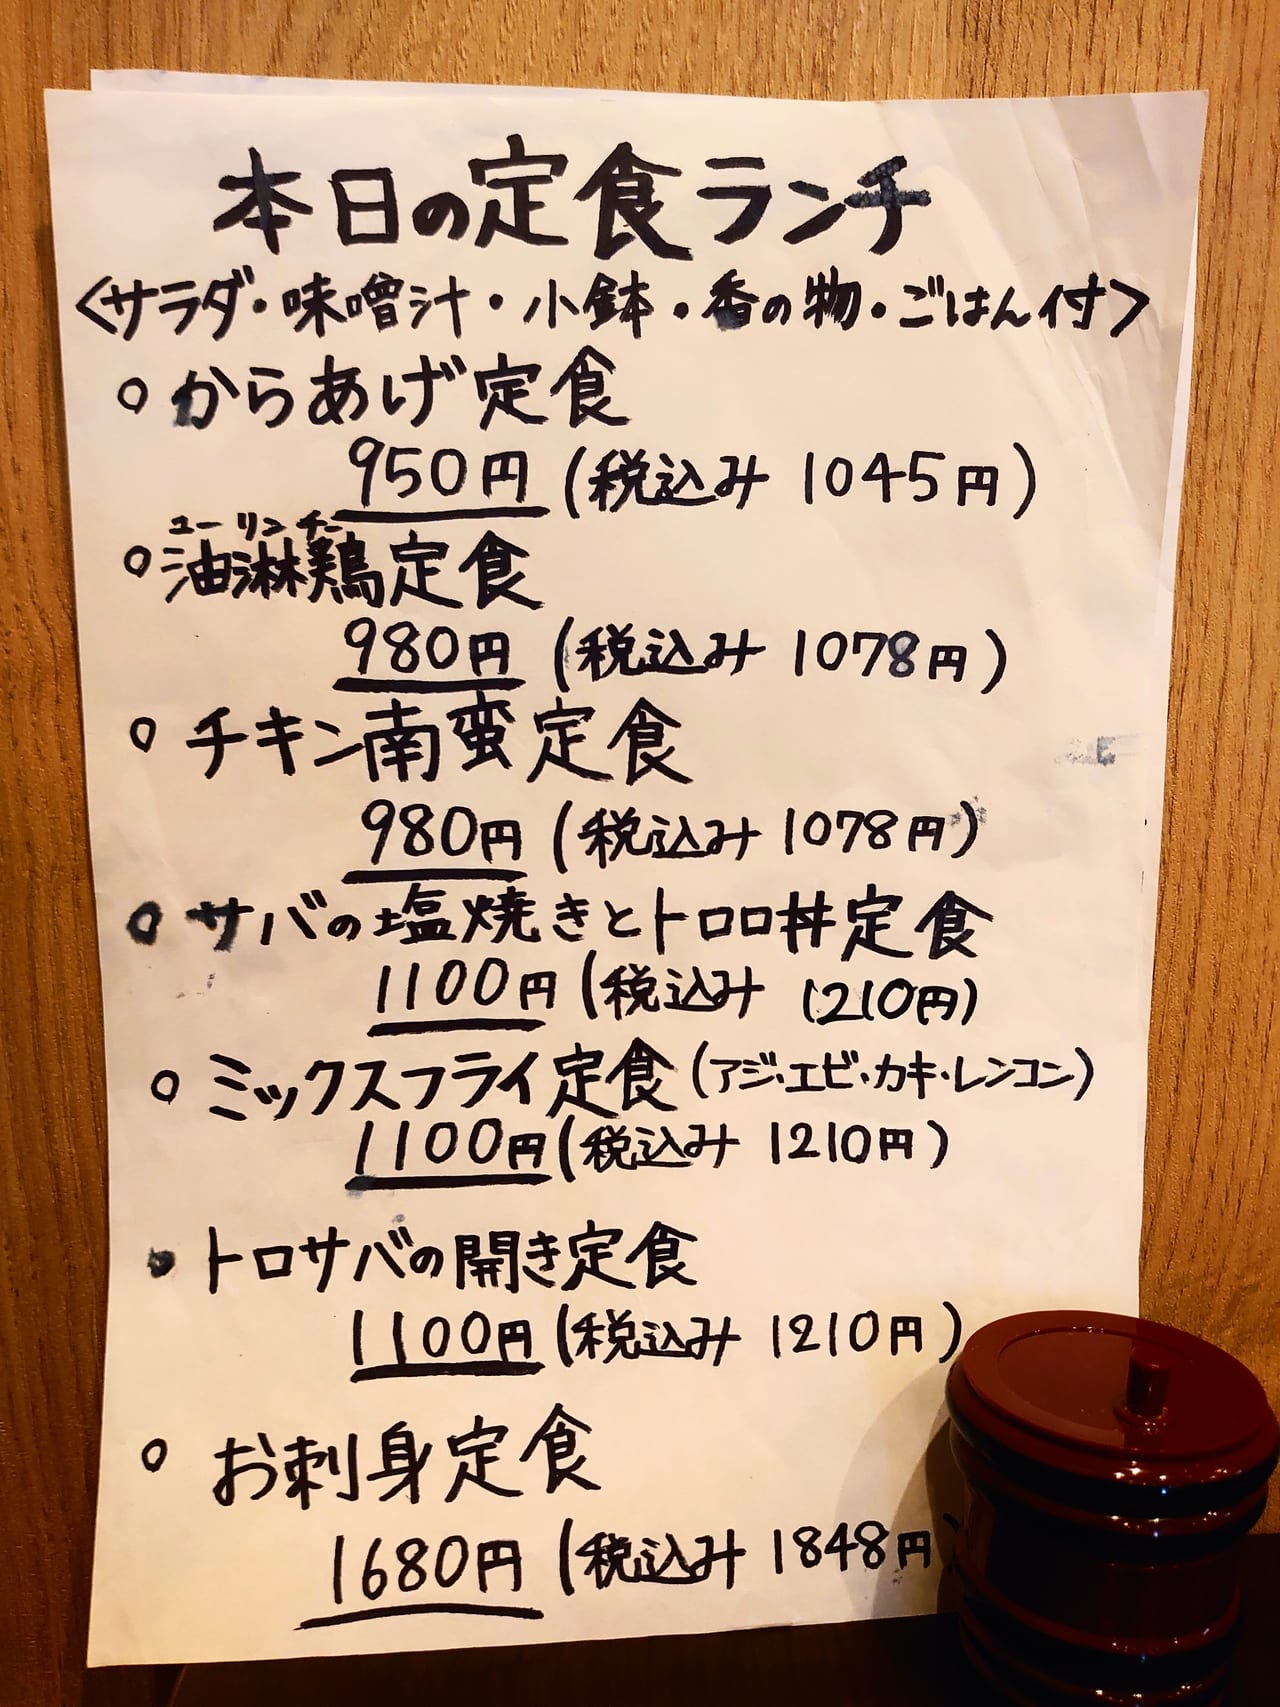 本日の定食ランチ
<サラダ・味噌汁・小鉢・香の物・ごはん付>
○ からあげ定食
950円 (税込み 1045円)
ユーリンチー
○ 油淋鶏定食
980円 (税込み 1078円)
○ チキン南蛮定食
980円 (税込み 1078円)
○ サバの塩焼きとトロロ丼定食
1100円 (税込み 1210円)
○ ミックスフライ定食 (アジ・エビ・カキ・レンコン)
1100円 (税込み 1210円)
● トロサバの開き定食
1100円 (税込み 1210円)
○ お刺身定食
1680円 (税込み 1848円)